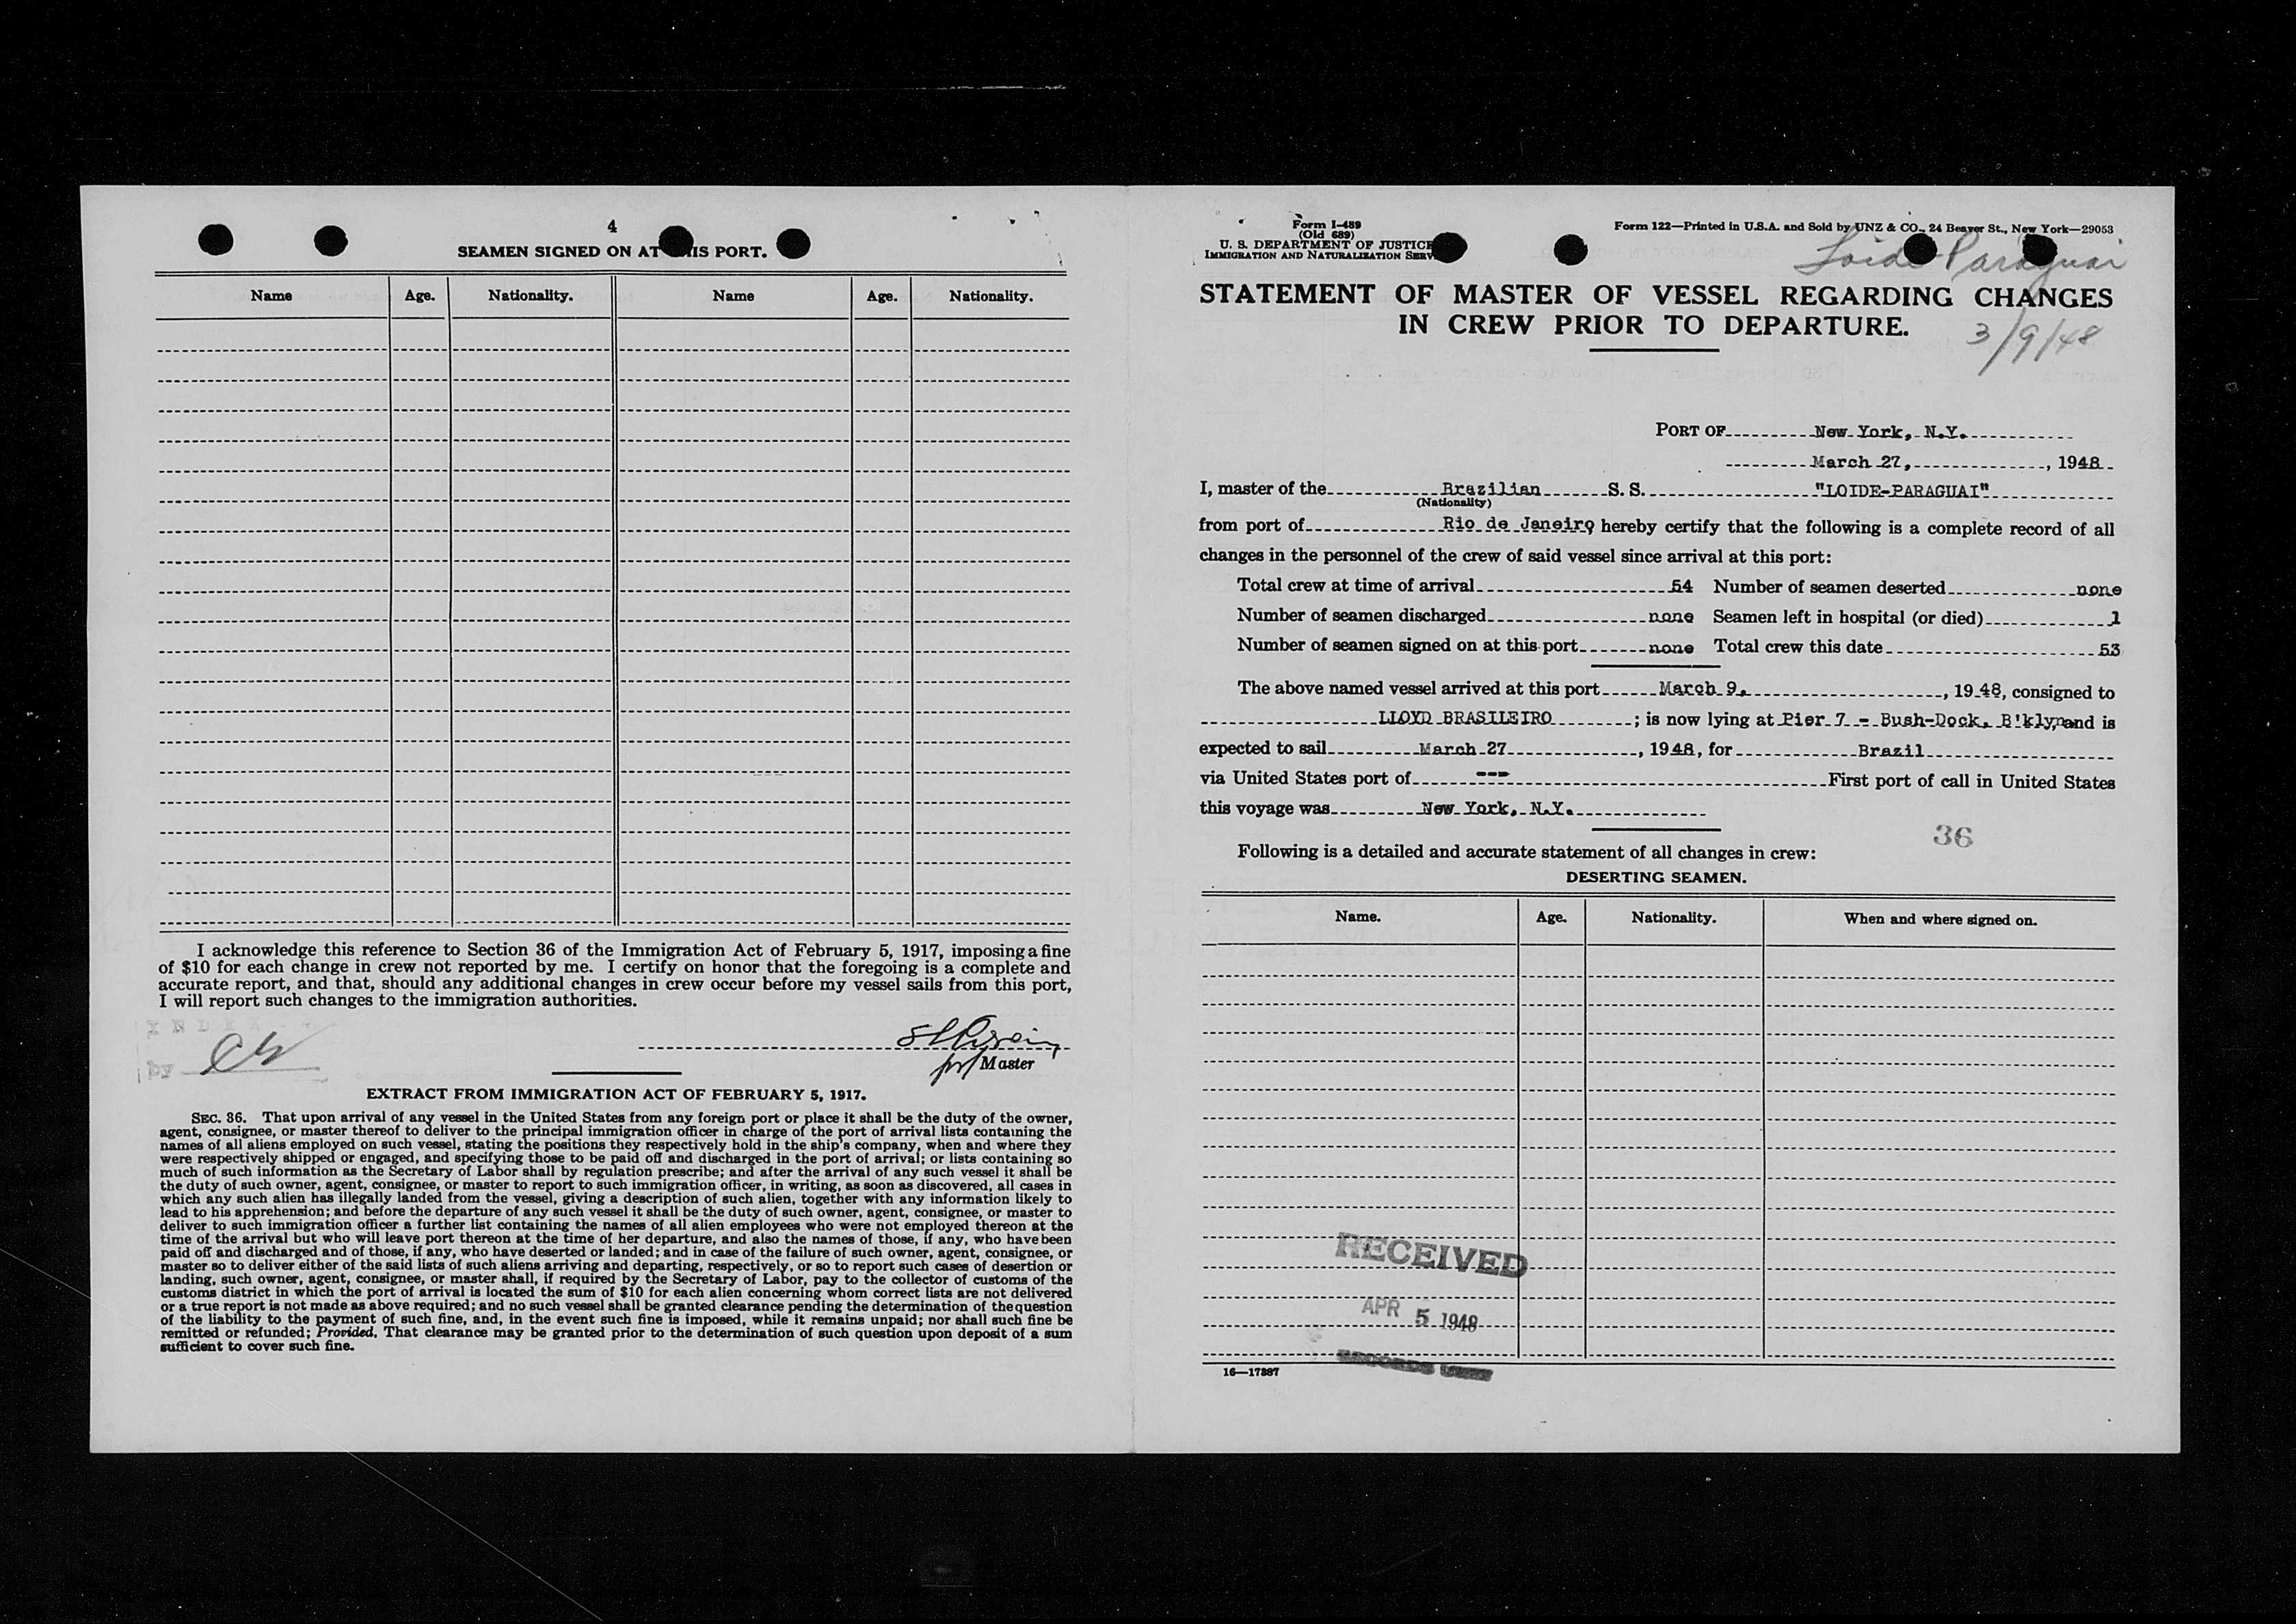 4
SEAMEN SIGNED ON AT THIS PORT.
Name Age. Nationality. Name Age. Nationality.
I acknowledge this reference to Section 36 of the Immigration Act of February 5, 1917, imposing a fine
of $10 for each change in crew not reported by me. I certify on honor that the foregoing is a complete and
accurate report, and that, should any additional changes in crew occur before my vessel sails from this port,
I will report such changes to the immigration authorities.
by
Master
EXTRACT FROM IMMIGRATION ACT OF FEBRUARY 5, 1917.
SEC. 36. That upon arrival of any vessel in the United States from any foreign port or place it shall be the duty of the owner,
agent, consignee, or master thereof to deliver to the principal immigration officer in charge of the port of arrival lists containing the
names of all aliens employed on such vessel, stating the positions they respectively hold in the ship's company, when and where they
were respectively shipped or engaged, and specifying those to be paid off and discharged in the port of arrival; or lists containing so
much of such information as the Secretary of Labor shall by regulation prescribe; and after the arrival of any such vessel it shall be
the duty of such owner, agent, consignee, or master to report to such immigration officer, in writing, as soon as discovered, all cases in
which any such alien has illegally landed from the vessel, giving a description of such alien, together with any information likely to
lead to his apprehension; and before the departure of any such vessel it shall be the duty of such owner, agent, consignee, or master to
deliver to such immigration officer a further list containing the names of all alien employees who were not employed thereon at the
time of the arrival but who will leave port thereon at the time of her departure, and also the names of those, if any, who have been
paid off and discharged and of those, if any, who have deserted or landed; and in case of the failure of such owner, agent, consignee, or
master so to deliver either of the said lists of such aliens arriving and departing, respectively, or so to report such cases of desertion or
landing, such owner, agent, consignee, or master shall, if required by the Secretary of Labor, pay to the collector of customs of the
customs district in which the port of arrival is located the sum of $10 for each alien concerning whom correct lists are not delivered
or a true report is not made as above required; and no such vessel shall be granted clearance pending the determination of the question
of the liability to the payment of such fine, and, in the event such fine is imposed, while it remains unpaid; nor shall such fine be
remitted or refunded; Provided, That clearance may be granted prior to the determination of such question upon deposit of a sum
sufficient to cover such fine.
Form I-489
(Old 689)
U. S. DEPARTMENT OF JUSTICE
IMMIGRATION AND NATURALIZATION SERV
Form 122—Printed in U.S.A. and Sold by UNZ & CO., 24 Beaver St., New York—29053
Loide Paraguai
STATEMENT OF MASTER OF VESSEL REGARDING CHANGES
IN CREW PRIOR TO DEPARTURE.
3/9/48
PORT OF New York, N.Y.
March 27, , 1948
I, master of the Brazilian S. S. "LOIDE-PARAGUAI"
(Nationality)
from port of Rio de Janeiro hereby certify that the following is a complete record of all
changes in the personnel of the crew of said vessel since arrival at this port:
Total crew at time of arrival 54 Number of seamen deserted none
Number of seamen discharged none Seamen left in hospital (or died) 1
Number of seamen signed on at this port none Total crew this date 53
The above named vessel arrived at this port March 9, , 1948, consigned to
LLOYD BRASILEIRO ; is now lying at Pier 7 - Bush-Dock, B'klyn and is
expected to sail March 27 , 1948, for Brazil
via United States port of --- First port of call in United States
this voyage was New York, N.Y.
36
Following is a detailed and accurate statement of all changes in crew:
DESERTING SEAMEN.
Name. Age. Nationality. When and where signed on.
RECEIVED
APR 5 1948
RECORDS
16—17387